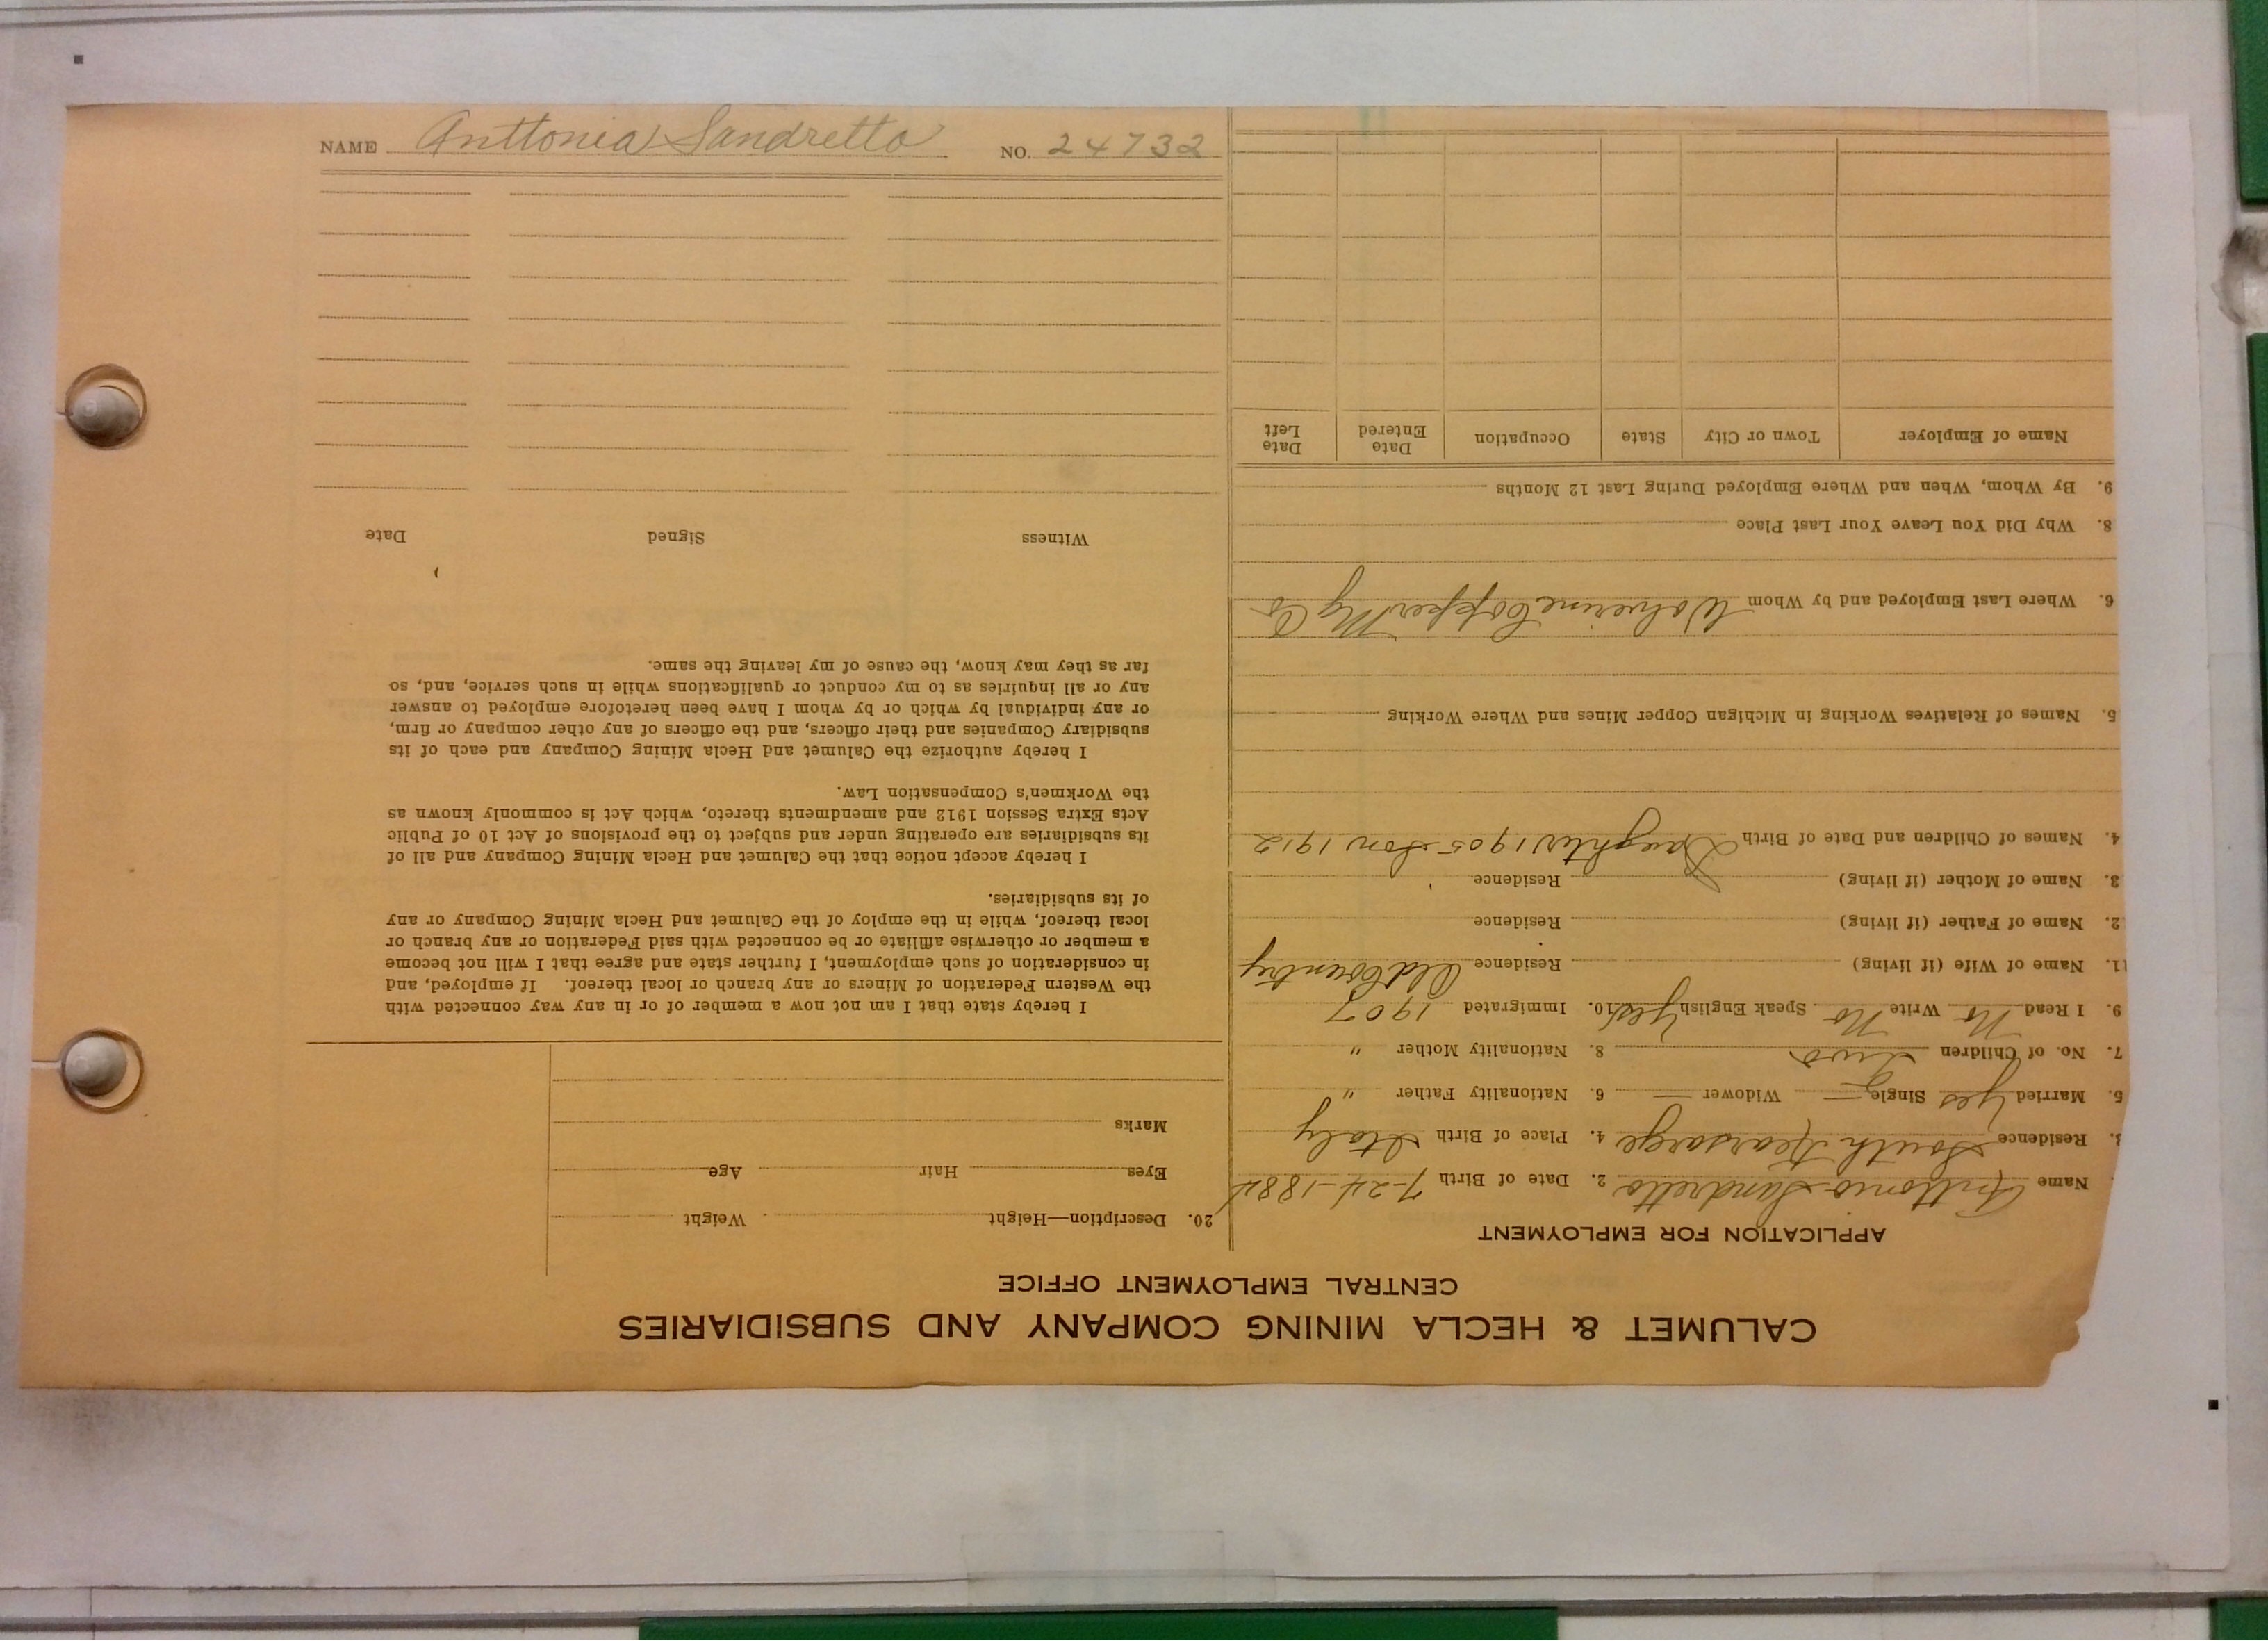 NAME Anttonia Sandretto NO. 24732
CALUMET & HECLA MINING COMPANY AND SUBSIDIARIES
CENTRAL EMPLOYMENT OFFICE
APPLICATION FOR EMPLOYMENT
Name Anttonio Sandretto 2. Date of Birth 7-24-1884
3. Residence South Kearsarge 4. Place of Birth Italy
5. Married Yes Single — Widower — 6. Nationality Father "
7. No. of Children Two 8. Nationality Mother "
9. I Read No Write No Speak English Yes 10. Immigrated 1907
11. Name of Wife (if living) Residence Old Country
2. Name of Father (if living) Residence
3. Name of Mother (if living) Residence
4. Names of Children and Date of Birth Daughter 1905 Son 1912
5. Names of Relatives Working in Michigan Copper Mines and Where Working
6. Where Last Employed and by Whom Wolverine Copper Mg Co
8. Why Did You Leave Your Last Place
9. By Whom, When and Where Employed During Last 12 Months
Name of Employer Town or City State Occupation Date Entered Date Left
20. Description—Height Weight
Eyes Hair Age
Marks
I hereby state that I am not now a member of or in any way connected with
the Western Federation of Miners or any branch or local thereof. If employed, and
in consideration of such employment, I further state and agree that I will not become
a member or otherwise affiliate or be connected with said Federation or any branch or
local thereof, while in the employ of the Calumet and Hecla Mining Company or any
of its subsidiaries.
I hereby accept notice that the Calumet and Hecla Mining Company and all of
its subsidiaries are operating under and subject to the provisions of Act 10 of Public
Acts Extra Session 1912 and amendments thereto, which Act is commonly known as
the Workmen's Compensation Law.
I hereby authorize the Calumet and Hecla Mining Company and each of its
subsidiary Companies and their officers, and the officers of any other company or firm,
or any individual by which or by whom I have been heretofore employed to answer
any or all inquiries as to my conduct or qualifications while in such service, and, so
far as they may know, the cause of my leaving the same.
Witness Signed Date